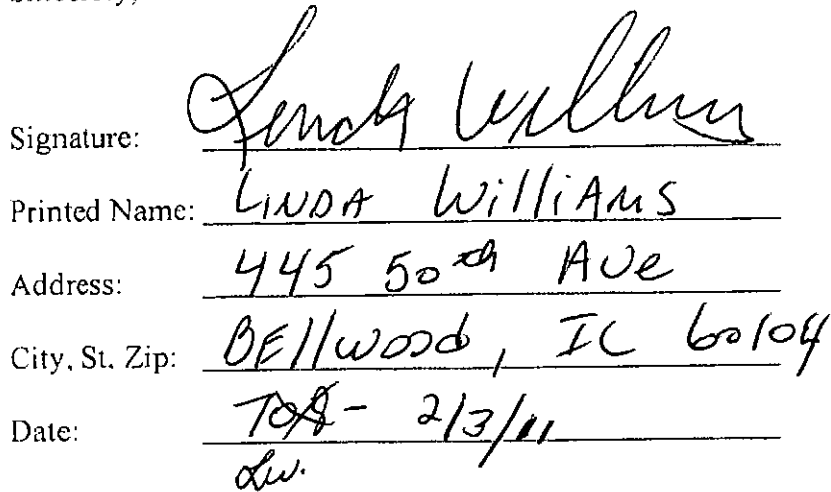 Signature: Linda Williams
Printed Name: LINDA WilliAMS
Address: 445 50th AVe
City, St. Zip: BEllwood, IL 60104
Date: 2/3/11
Lw.